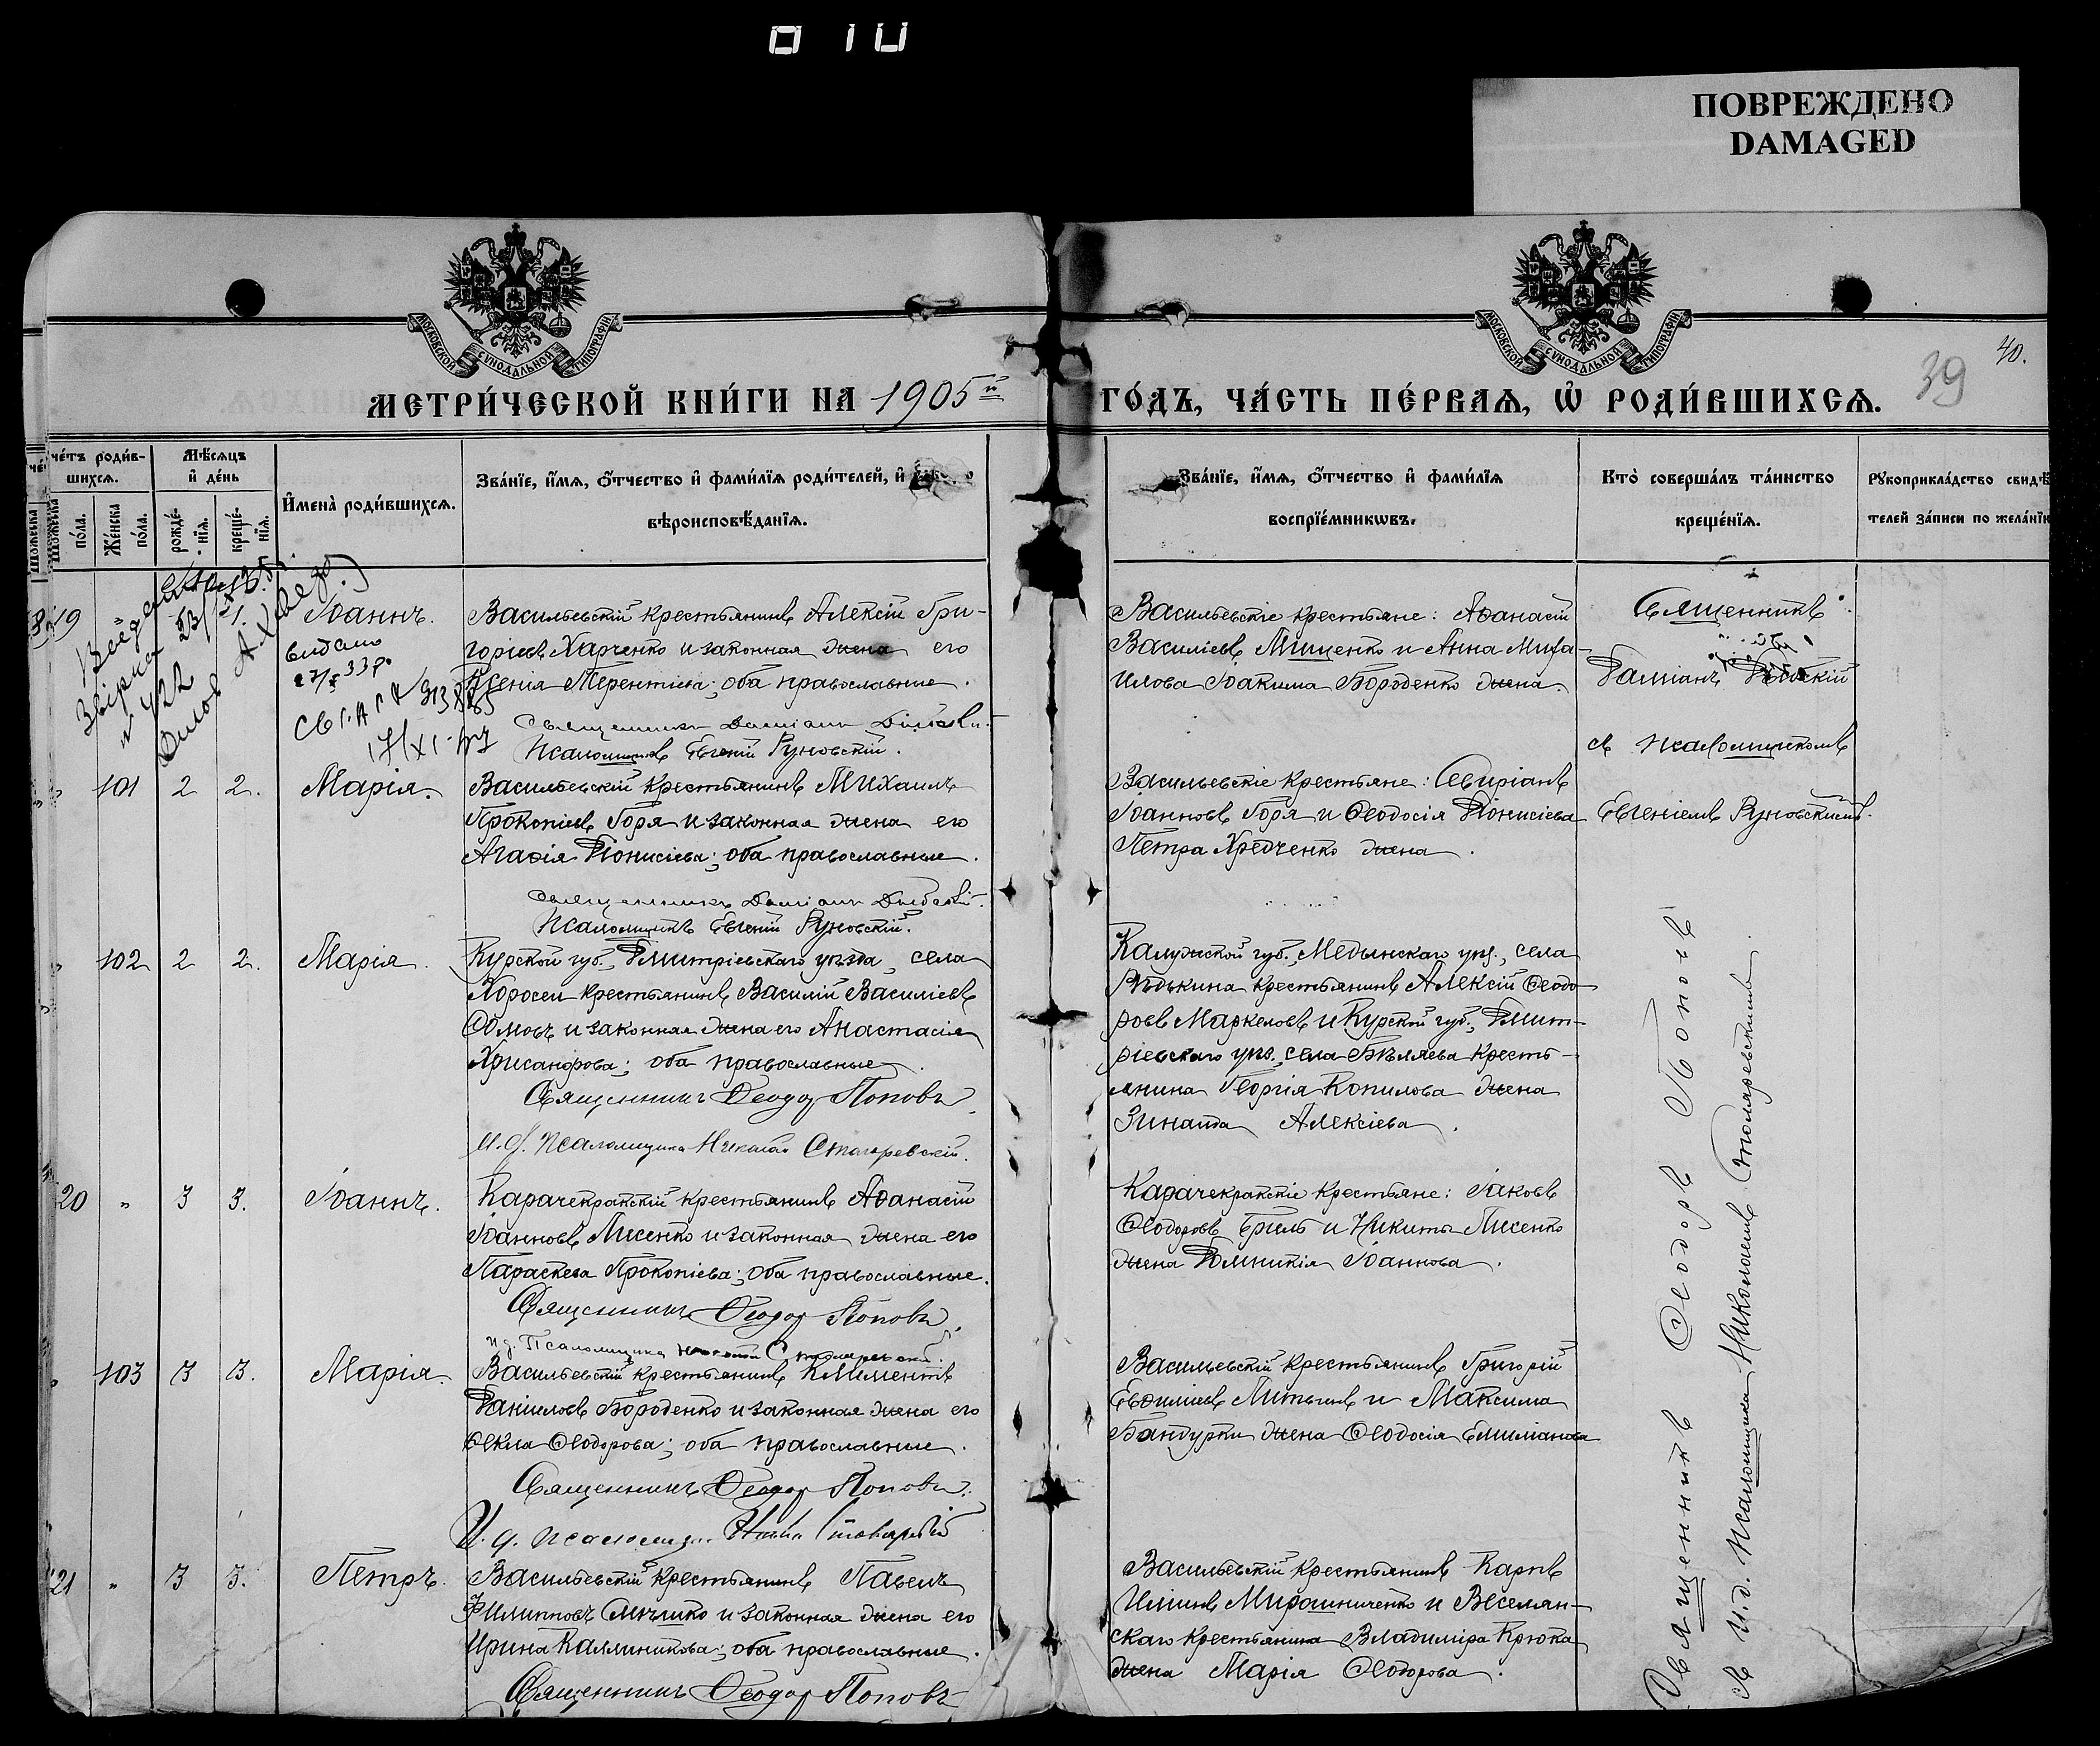 ПОВРЕЖДЕНО
DAMAGED
МОСКОВСКОЙ СУНОДАЛЬНОЙ ТИПОГРАФІИ
МОСКОВСКОЙ СУНОДАЛЬНОЙ ТИПОГРАФІИ
40.
39
МЕТРИ́ЧЕСКОЙ КНИ́ГИ НА 1905й ГО́ДЪ, ЧА́СТЬ ПЕ́РВАЯ, Ѡ РОДИ́ВШИХСЯ.
че́тъ роди́в-
шихся.
Мѣ́сяцъ
и де́нь
по́ла.
Же́нска
по́ла.
рожде́-
нія.
креще́-
нія.
Имена̀ роди́вшихся.
Зва́ніе, и́мя, о́тчество и фами́лія роди́телей, и
вѣроисповѣ́данія.
Зва́ніе, и́мя, о́тчество и фами́лія
воспріе́мниковъ.
Кто̀ соверша́лъ та́инство
креще́нія.
Рукоприкла́дство свидѣ
телей за́писи по жела́нію
19
Іоаннъ.
видано
27/X 33 р.
Васильевскій крестьянинъ Алексій Гри-
горіевъ Харченко и законная жена его
Ксенія Терентіева; оба православные.
Священникъ Даміанъ
Псаломщикъ Евгеній Руновскій.
Васильевскіе крестьяне: Аѳанасій
Василіевъ Мищенко и Анна Миха-
илова Іоакима Бороденко жена.
Священникъ
Даміанъ
съ псаломщикомъ
Евгеніемъ Руновскимъ.
101 2 2. Марія.
Васильевскій крестьянинъ Михаилъ
Прокопіевъ Горя и законная жена его
Агаѳія Діонисіева; оба православные.
Священникъ Даміанъ
Псаломщикъ Евгеній Руновскій.
Васильевскіе крестьяне: Свиріанъ
Іоанновъ Горя и Ѳеодосія Діонисіева
Петра Хредченко жена.
102 2 2. Марія.
Курской губ., Дмитріевскаго уѣзда, села
крестьянинъ Василій Василіевъ
и законная жена его Анастасія
Хрисанфова; оба православные.
Священникъ Ѳеодоръ Поповъ.
И. д. псаломщика Николай Столяревскій.
Калужской губ., Медынскаго уѣз., села
Рѣдькина крестьянинъ Алексій Ѳеодо-
ровъ Маркеловъ и Курской губ., Дмит-
ріевскаго уѣз. села Бѣляева кресть-
янина Георгія Копилова жена
Зинаида Алексіева.
20 " 3 3. Іоаннъ.
Карачекракскій крестьянинъ Аѳанасій
Іоанновъ Лисенко и законная жена его
Параскева Прокопіева; оба православные.
Священникъ Ѳеодоръ Поповъ.
И. д. Псаломщика Николай Столяревскій.
Карачекракскіе крестьяне: Іаковъ
Ѳеодоровъ Бриль и Никиты Лисенко
жена Домникія Іоаннова.
103 3 3. Марія.
Васильевскій крестьянинъ Климентъ
Даніиловъ Бороденко и законная жена его
Ѳекла Ѳеодорова; оба православные.
Священникъ Ѳеодоръ Поповъ.
И. д. псаломщ.
Васильевскій крестьянинъ Григорій
Евѳиміевъ Литвинъ и Максима
Бандурки жена Ѳеодосія Емиліанова
21 " 3 3. Петръ.
Васильевскій крестьянинъ Павелъ
Филипповъ и законная жена его
Ирина Каллиникова; оба православные.
Священникъ Ѳеодоръ Поповъ
Васильевскій крестьянинъ Карпъ
Ильинъ Мирошниченко и Веселян-
скаго крестьянина Владиміра Крюка
жена Марія Ѳеодорова.
Священникъ Ѳеодоръ Поповъ
съ и.д. псаломщика Николаемъ Столяревскимъ.